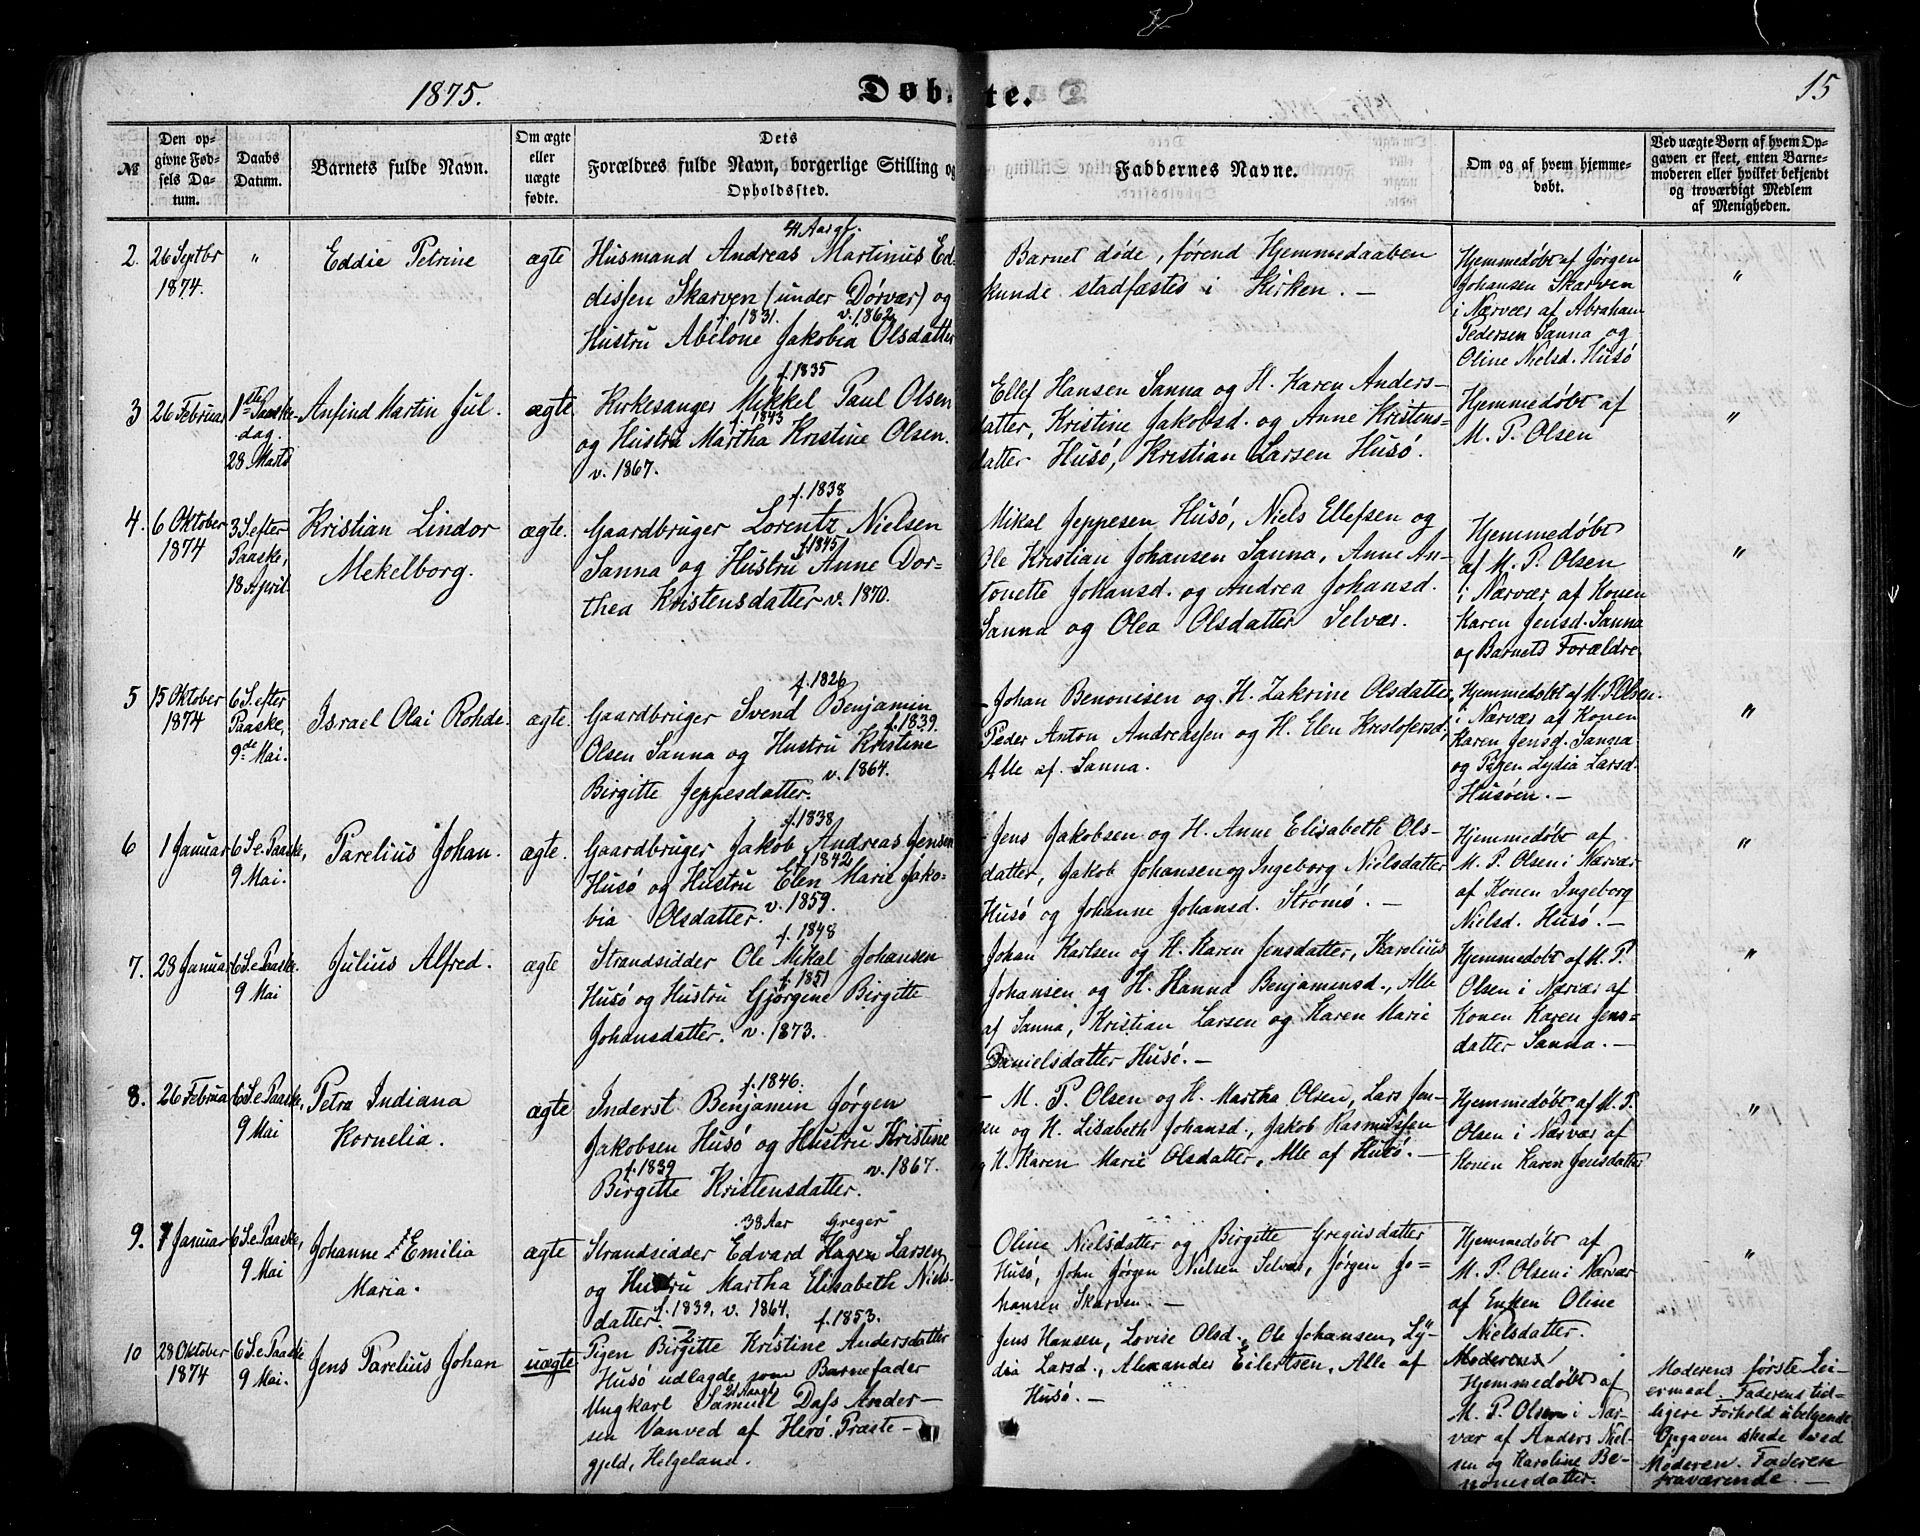 1875.
Døbte.
15
№
Den op-
givne Fød-
sels Da-
tum.
Daabs
Datum.
Barnets fulde Navn.
Om ægte
eller
uægte
fødte.
Dets
Forældres fulde Navn, borgerlige Stilling og
Opholdssted.
Faddernes Navne.
Om og af hvem hjemme-
døbt.
Ved uægte Børn af hvem Op-
gaven er skeet, enten Barne-
moderen eller hvilket bekjendt
og troværdigt Medlem
af Menigheden.
2.
26 Septbr
1874.
"
Eddie Petrine
ægte
41 Aargl.
Husmand Andreas Martinus Ed-
dissen Skarven (under Dørvær) og
f. 1831. v. 1862
Hustru Abelone Jakobia Olsdatter
Barnet døde, førend Hjemmedaaben
kunde stadfæstes i Kirken. —
Hjemmedøbt af Jørgen
Johansen Skarven
i Nærvær af Abraham
Pedersen Sanna og
Oline Nielsd. Husö
"
3
26 Februar
1ste Paaske-
dag.
28 Marts
Anfind Martin Jul.
ægte
f. 1835
Kirkesanger Mikkel Paul Olsen
f. 1843
og Hustru Martha Kristine Olsen.
v. 1867.
Ellef Hansen Sanna og H. Karen Anders-
datter, Kristine Jakobsd. og Anne Kristens-
datter Husö, Kristian Larsen Husö.
Hjemmedøbt af
M. P. Olsen
"
4.
6 Oktober
1874
3 S. efter
Paaske,
18 April.
Kristian Lindor
Mekelborg.
ægte.
f. 1838
Gaardbruger Lorentz Nielsen
f. 1845
Sanna og Hustru Anne Dor-
thea Kristensdatter v. 1870.
Mikal Jeppesen Husö, Niels Ellefsen og
Ole Kristian Johansen Sanna, Anne An-
tonette Johansd. og Andrea Johansd.
Sanna og Olea Olsdatter Selvær.
Hjemmedøbt
af M. P. Olsen
i Nærvær af Konen
Karen Jensd. Sanna
og Barnets Forældre
"
5
15 Oktober
1874
6 S. efter
Paaske,
9de Mai.
Israel Olai Rohde.
ægte.
f. 1826
Gaardbruger Svend Benjamin
f. 1839.
Olsen Sanna og Hustru Kristine
v. 1864.
Birgitte Jeppesdatter.
Johan Benonisen og H. Zakrine Olsdatter,
Peder Anton Andreassen og H. Elen Kristofersd.,
Alle af Sanna.
Hjemmedøbt af M. P. Olsen.
i Nærvær af Konen
Karen Jensd. Sanna
og Pigen Lydia Larsd.
Husöen. —
"
6
1 Januar
6 S. e. Paaske,
9 Mai.
Parelius Johan.
ægte.
f. 1838
Gaardbruger Jakob Andreas Jensen
f. 1842
Husö og Hustru Elen Marie Jako-
bia Olsdatter. v. 1859.
Jens Jakobsen og H. Anne Elisabeth Ols-
datter, Jakob Johansen og Ingeborg Nielsdatter
Husö og Johanne Johansd. Strömö. —
Hjemmedøbt af
M. P. Olsen i Nærvær
af Konen Ingeborg
Nielsd. Husö. —
"
7.
28 Januar
6 S. e. Paaske.
9 Mai
Julius Alfred.
ægte
f. 1848
Strandsidder Ole Mikal Johansen
f. 1851
Husö og Hustru Gjørgene Birgitte
Johansdatter. v. 1873.
Johan Karlsen og H. Karen Jensdatter, Karelius
Johansen og H. Hanna Benjaminsd., Alle
af Sanna, Kristian Larsen og Karen Marie
Danielsdatter Husö. —
Hjemmedøbt af M. P.
Olsen i Nærvær af
Konen Karen Jens-
datter Sanna. —
"
8.
26 Februar
6 S. e. Paaske,
9 Mai
Petra Indiana
Kornelia.
ægte
f. 1846.
Inderst Benjamin Jørgen
Jakobsen Husö og Hustru Kristine
f. 1839 v. 1867.
Birgitte Kristensdatter.
— M. P. Olsen og H. Martha Olsen, Lars Jen-
sen og H. Lisabeth Johansd., Jakob Rasmussen
og H. Karen Marie Olsdatter, Alle af Husö. —
Hjemmedøbt af M. P.
Olsen i Nærvær af
Konen Karen Jensdatter
"
9.
7 Januar
6 S. e. Paaske,
9 Mai
Johanne Emilia
Maria.
ægte
38 Aar Greger
Strandsidder Edvard Hagen Larsen
og Hustru Martha Elisabeth Niels-
datter f. 1839, v. 1864.
Oline Nielsdatter og Birgitte Gregusdatter
Husö, John Jørgen Nielsen Selvær, Jørgen Jo-
hansen Skarven. —
Hjemmedøbt af
M. P. Olsen i Nærvær
af Enken Oline
Nielsdatter.
"
10
28 Oktober
1874
6 S. e. Paaske
9 Mai.
Jens Parelius Johan
uægte
f. 1853.
Pigen Birgitte Kristine Andersdatter
Husö udlagde som Barnefader
21 Aargl.
Ungkarl Samuel Dass Ander-
sen Vanved af Herö Præste-
gjeld, Helgeland.
Jens Hansen, Lovise Olsd., Ole Johansen, Ly-
dia Larsd., Alexander Eilertsen, Alle af
Husö. —
Moderens
Hjemmedøbt af
M. P. Olsen i Nær-
vær af Anders Niel-
sen og Karoline Be-
nonesdatter.
Moderens første Lei-
ermaal. Faderens tid-
ligere Forhold ubekjendte
Opgaven skede ved
Moderen. Faderen
fraværende. —